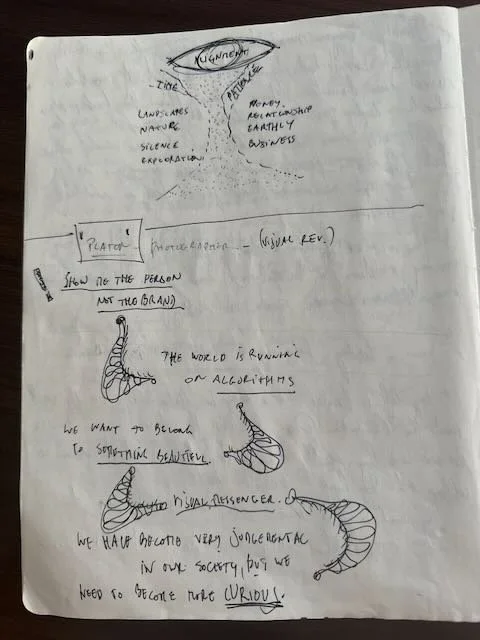 ALIGNMENT
TIME
PATIENCE
LANDSCAPES
NATURE
SILENCE
EXPLORATION
MONEY
RELATIONSHIP
EARTHLY
BUSINESS
"PLATON" - PHOTOGRAPHER - (VISUAL REV.)
SHOW ME THE PERSON
NOT THE BRAND
THE WORLD IS RUNNING
ON ALGORITHMS
WE WANT TO BELONG
TO SOMETHING BEAUTIFUL.
VISUAL MESSENGER.
WE HAVE BECOME VERY JUDGEMENTAL
IN OUR SOCIETY, BUT WE
NEED TO BECOME MORE CURIOUS.